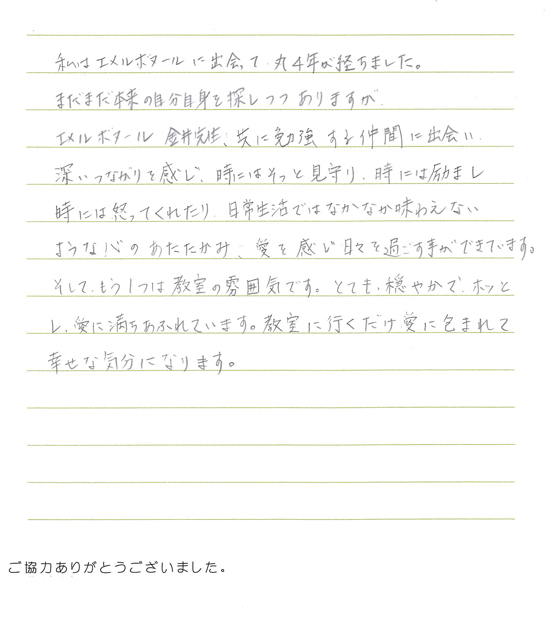 私はエメルボタールに出会って、丸4年が経ちました。
まだまだ本来の自分自身を探しつつありますが、
エメルボタール 金井先生、共に勉強する仲間に出会い、
深いつながりを感じ、時にはそっと見守り、時には励まし
時には怒ってくれたり、日常生活ではなかなか味わえない
ような心のあたたかみ、愛を感じ日々を過ごす事ができています。
そして、もう1つは教室の雰囲気です。とても、穏やかで、ホッと
し、愛に満ちあふれています。教室に行くだけ、愛に包まれて
幸せな気分になります。
ご協力ありがとうございました。